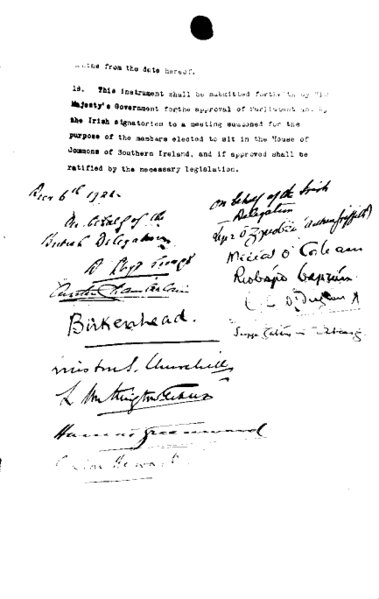 from the date hereof.
18. This instrument shall be submitted forthwith by His
Majesty's Government for the approval of Parliament and by
the Irish signatories to a meeting summoned for the
purpose of the members elected to sit in the House of
Commons of Southern Ireland, and if approved shall be
ratified by the necessary legislation.
Decr 6th 1921.
On behalf of the
British Delegation
D Lloyd George
Austen Chamberlain
Birkenhead.
Winston S. Churchill
L Worthington Evans
Hamar Greenwood
Gordon Hewart
On behalf of the Irish
Delegation
Art Ó Gríobhtha (Arthur Griffith)
Mícheál Ó Coileain
Riobárd Bartún